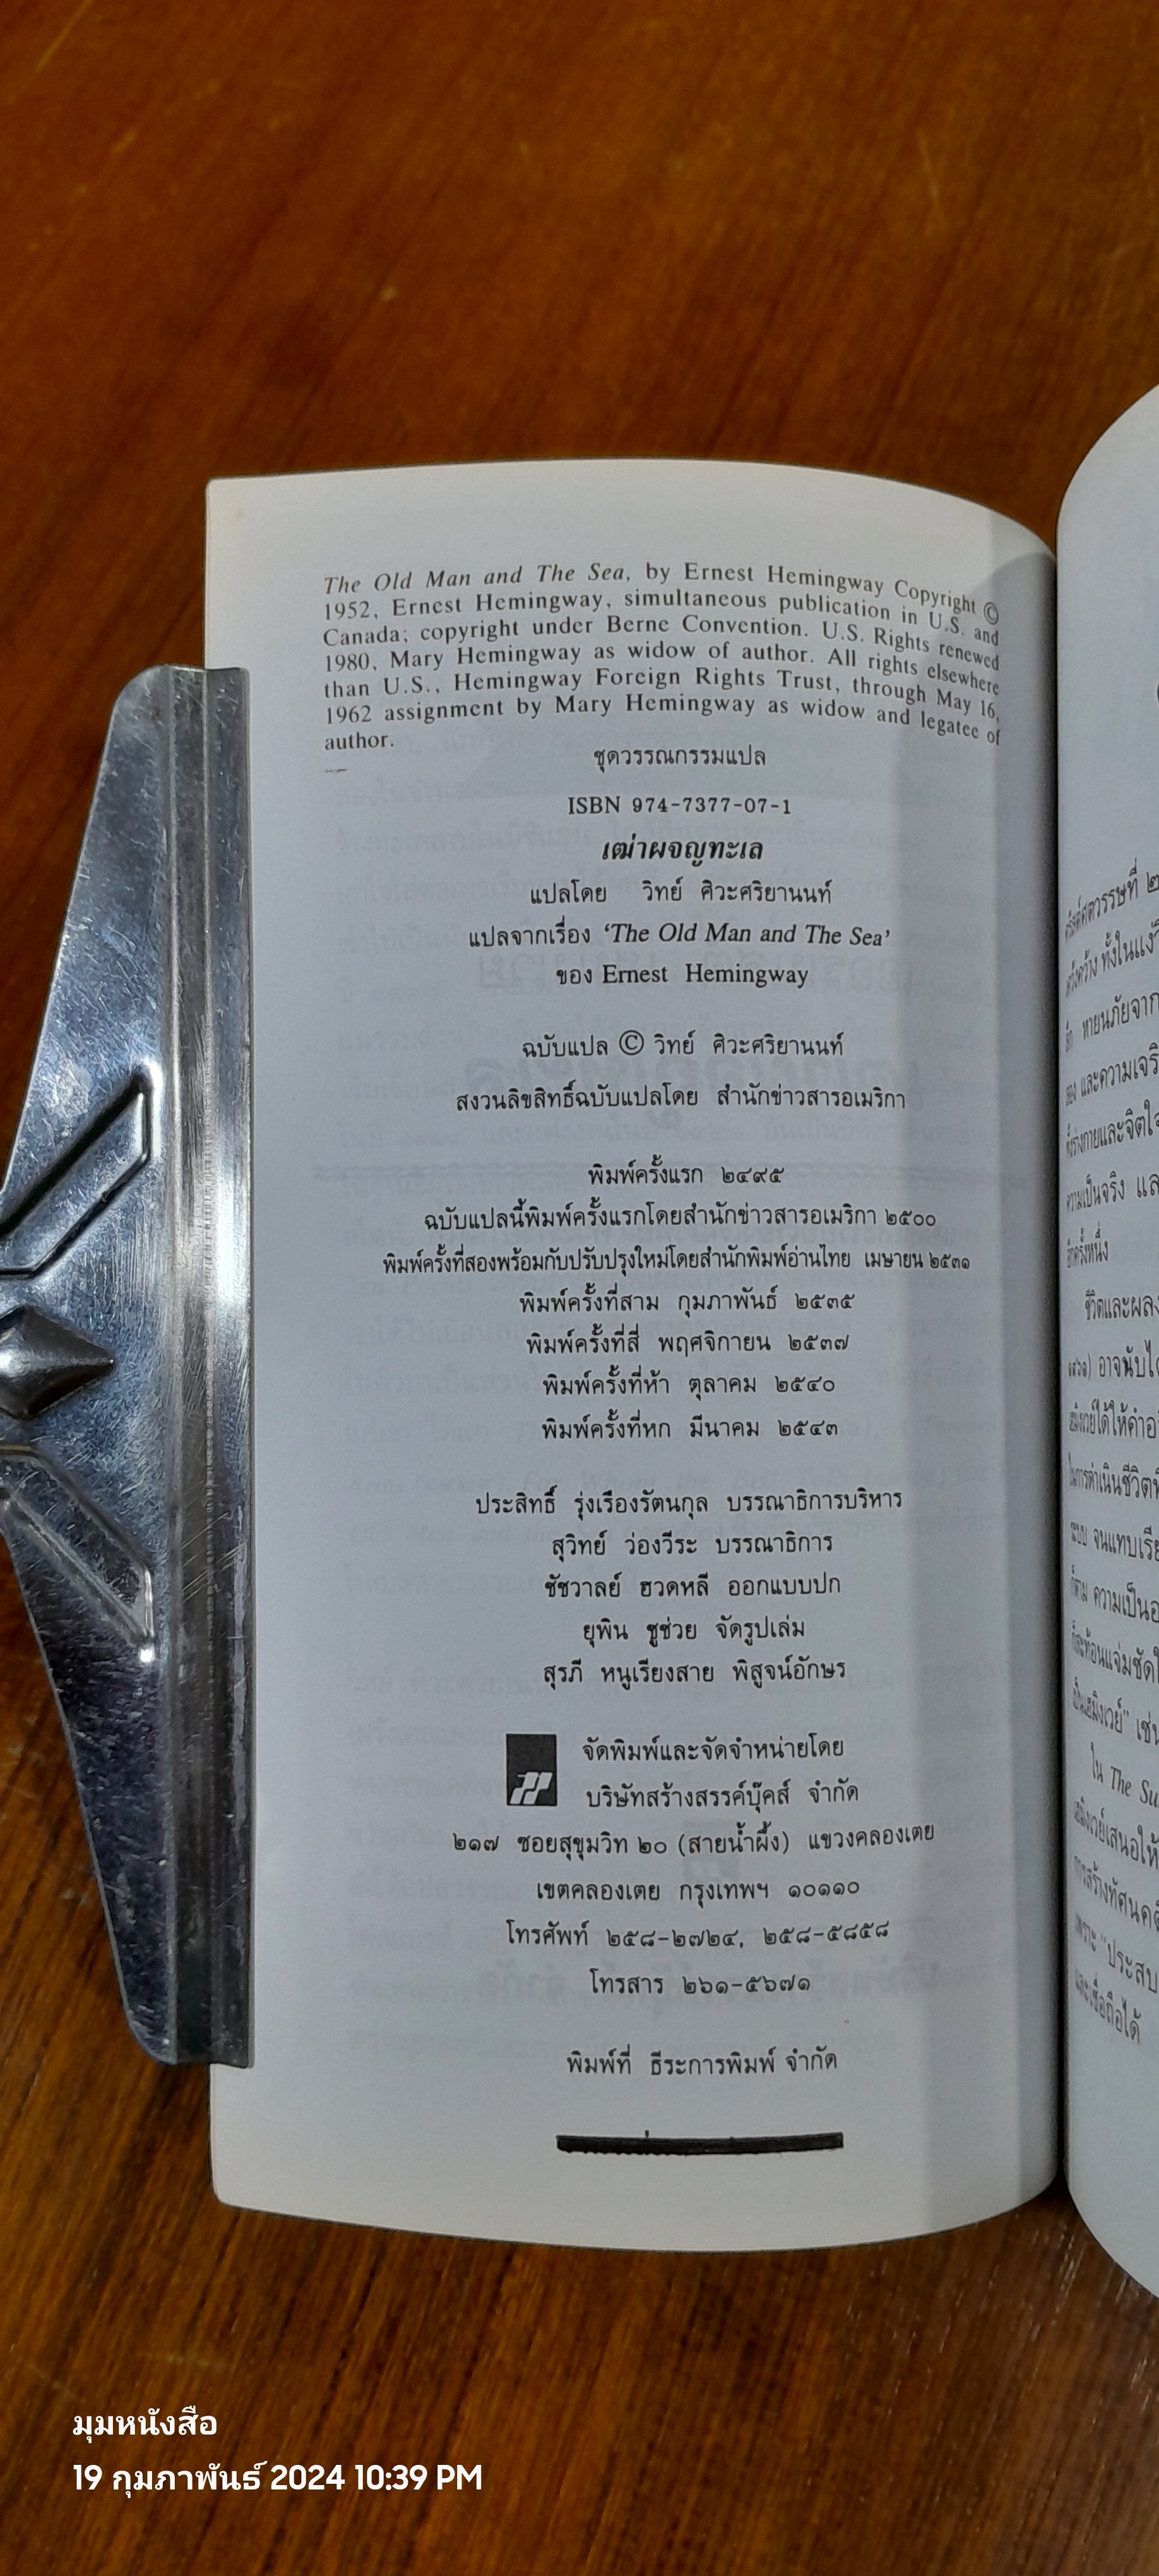 The Old Man and The Sea, by Ernest Hemingway Copyright ©
1952, Ernest Hemingway, simultaneous publication in U.S. and
Canada; copyright under Berne Convention. U.S. Rights renewed
1980, Mary Hemingway as widow of author. All rights elsewhere
than U.S., Hemingway Foreign Rights Trust, through May 16,
1962 assignment by Mary Hemingway as widow and legatee of
author.
ชุดวรรณกรรมแปล
ISBN 974-7377-07-1
เฒ่าผจญทะเล
แปลโดย วิทย์ ศิวะศริยานนท์
แปลจากเรื่อง ‘The Old Man and The Sea’
ของ Ernest Hemingway
ฉบับแปล © วิทย์ ศิวะศริยานนท์
สงวนลิขสิทธิ์ฉบับแปลโดย สำนักข่าวสารอเมริกา
พิมพ์ครั้งแรก ๒๔๙๕
ฉบับแปลนี้พิมพ์ครั้งแรกโดยสำนักข่าวสารอเมริกา ๒๕๐๐
พิมพ์ครั้งที่สองพร้อมกับปรับปรุงใหม่โดยสำนักพิมพ์อ่านไทย เมษายน ๒๕๓๑
พิมพ์ครั้งที่สาม กุมภาพันธ์ ๒๕๓๕
พิมพ์ครั้งที่สี่ พฤศจิกายน ๒๕๓๗
พิมพ์ครั้งที่ห้า ตุลาคม ๒๕๔๐
พิมพ์ครั้งที่หก มีนาคม ๒๕๔๓
ประสิทธิ์ รุ่งเรืองรัตนกุล บรรณาธิการบริหาร
สุวิทย์ ว่องวีระ บรรณาธิการ
ชัชวาลย์ ฮวดหลี ออกแบบปก
ยุพิน ชูช่วย จัดรูปเล่ม
สุรภี หนูเรียงสาย พิสูจน์อักษร
จัดพิมพ์และจัดจำหน่ายโดย
บริษัทสร้างสรรค์บุ๊คส์ จำกัด
๒๑๗ ซอยสุขุมวิท ๒๐ (สายน้ำผึ้ง) แขวงคลองเตย
เขตคลองเตย กรุงเทพฯ ๑๐๑๑๐
โทรศัพท์ ๒๕๘-๒๗๒๔, ๒๕๘-๕๘๕๘
โทรสาร ๒๖๑-๕๖๗๑
พิมพ์ที่ ธีระการพิมพ์ จำกัด
ทั้งในแง่
หายนภัยจาก
และความเจริ
ความเป็นจริง แล
อีกครั้งหนึ่ง
ชีวิตและผลง
อาจนับได้
ในการดำเนินชีวิตที่
จนแทบเรีย
ความเป็นอ
เช่น
ใน The Su
"ประสบ
และเชื่อถือได้
มุมหนังสือ
19 กุมภาพันธ์ 2024 10:39 PM